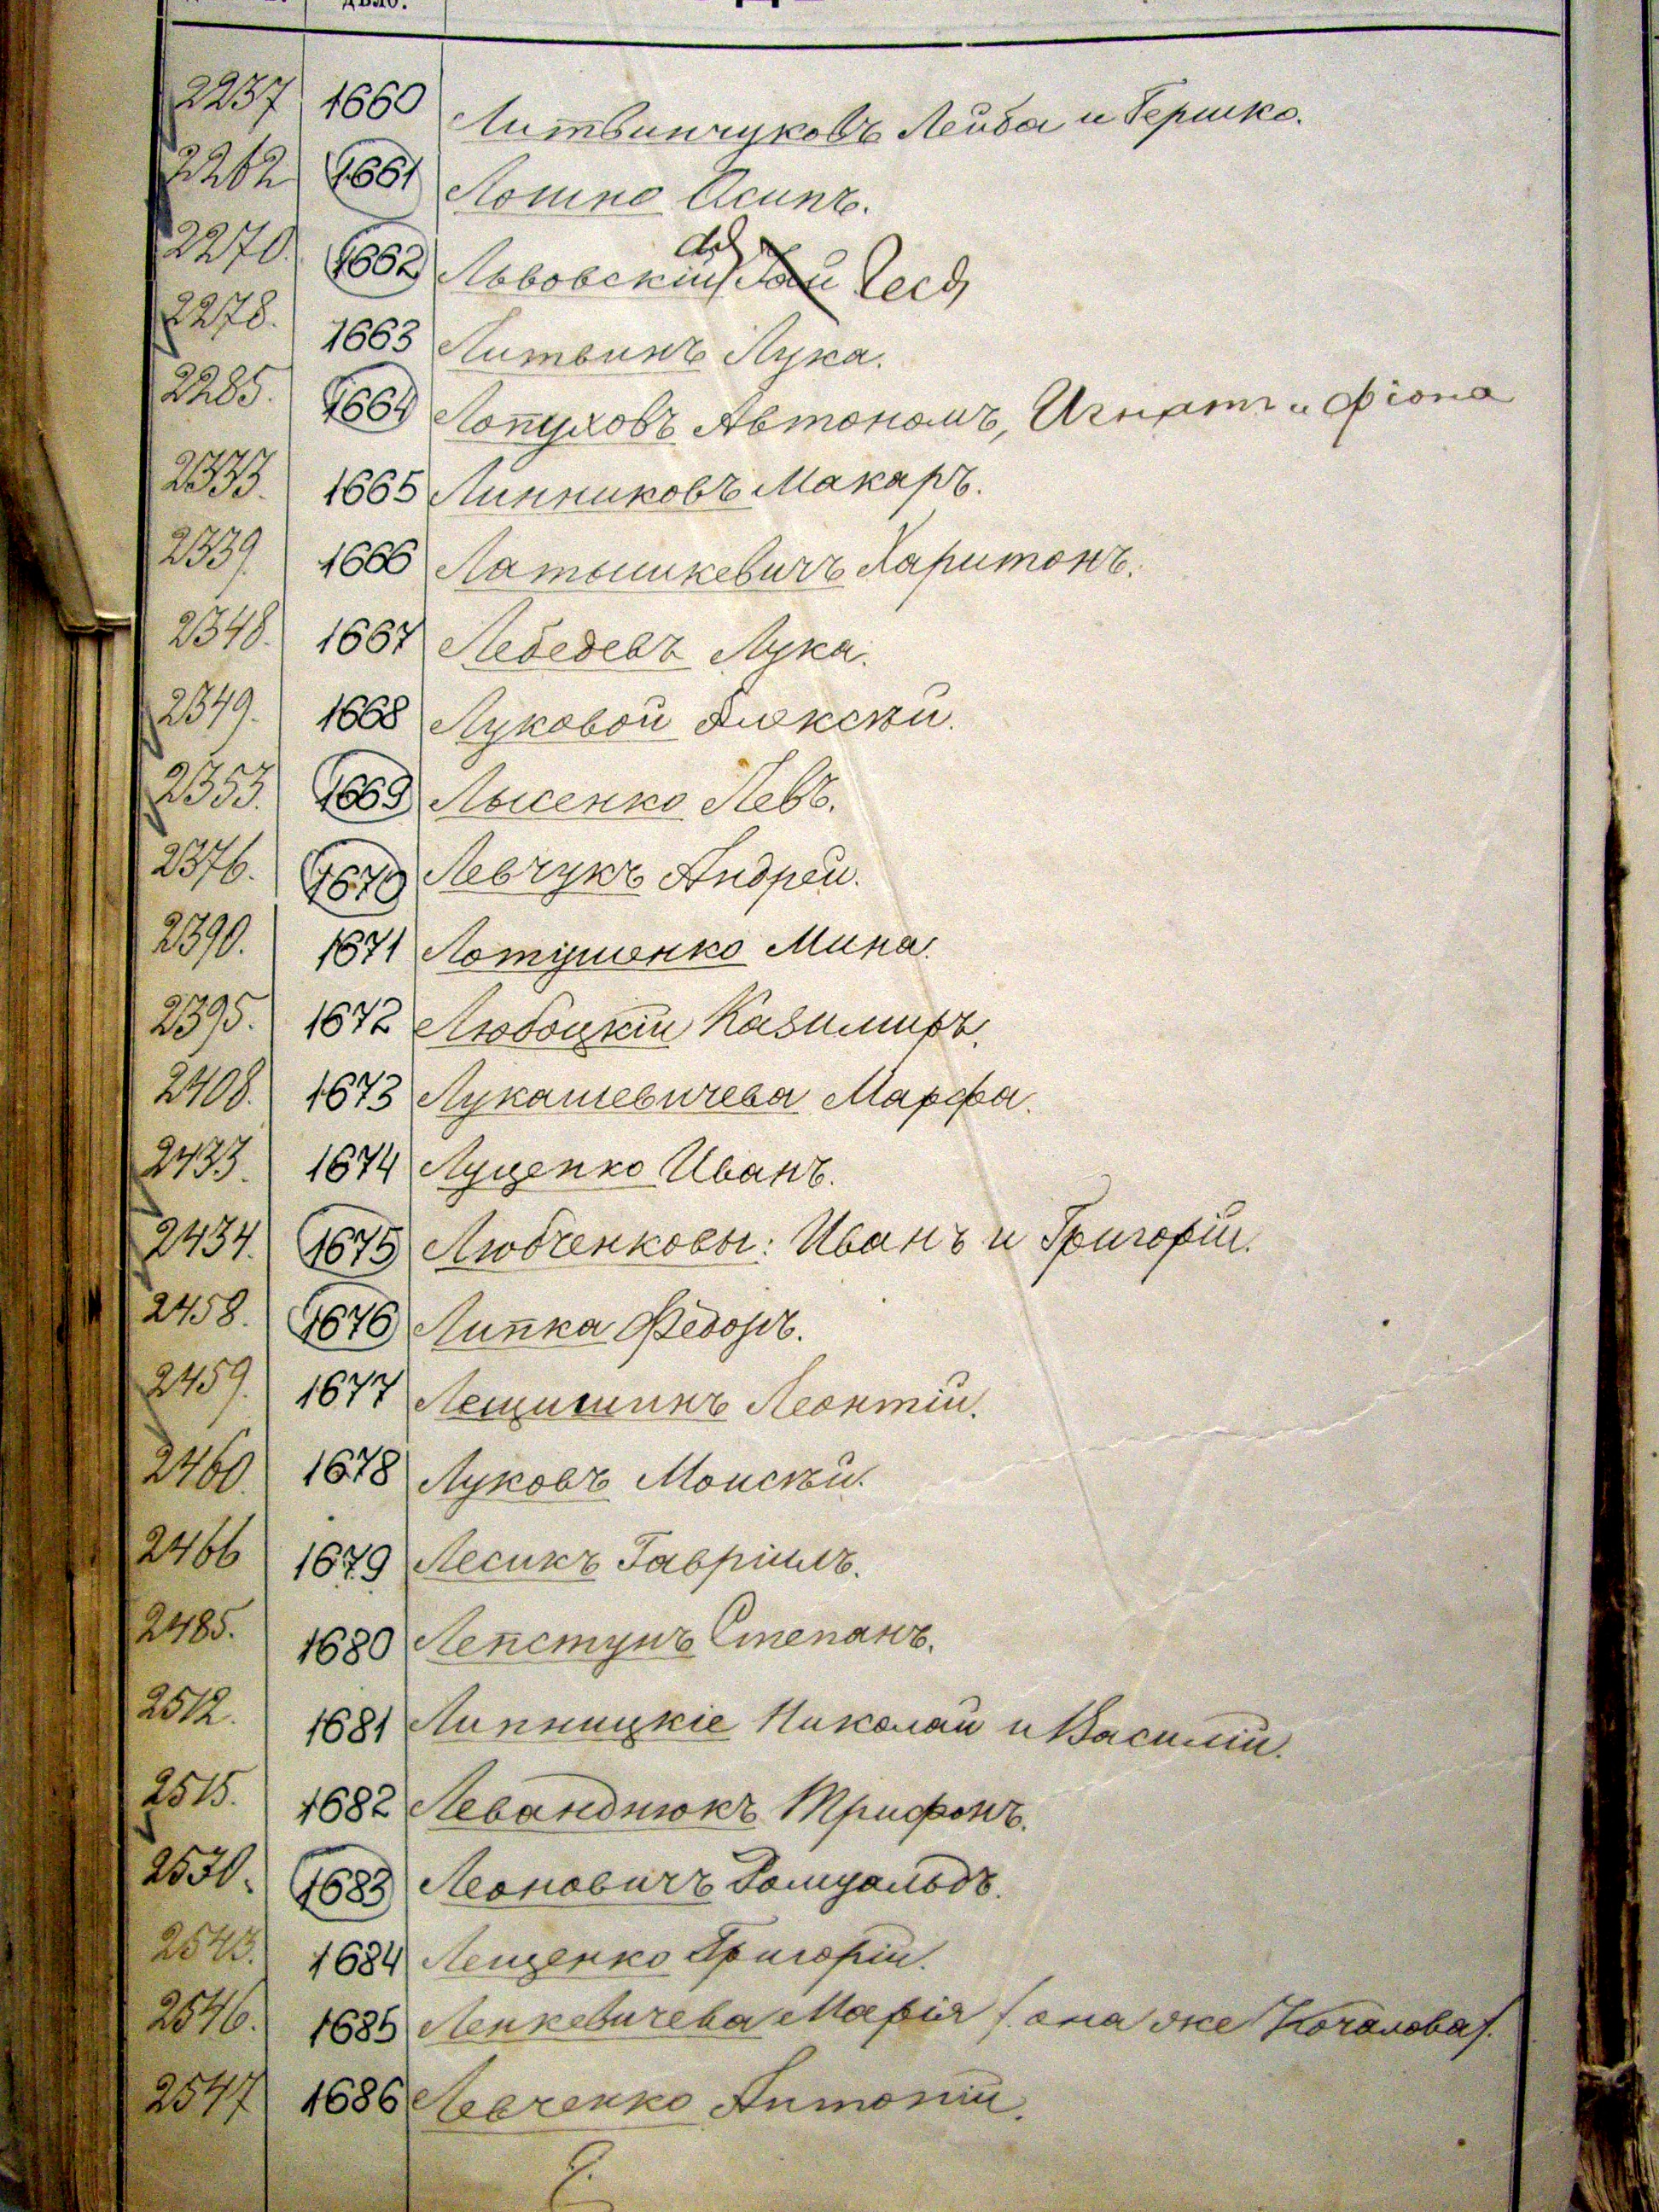 дѣло.
2237 1660 Литвинчуковъ Лейба и Гершко.
2262 1661 Лошно Осипъ.
2270. 1662 Львовскій Гай Геся
2278. 1663 Литвинъ Лука.
2285. 1664 Лопуховъ Автономъ, Игнатъ и Фіона
2333. 1665 Линниковъ Макаръ.
2339. 1666 Латышкевичъ Харитонъ.
2348. 1667 Лебедевъ Лука.
2349. 1668 Луковой Алексѣй.
2353. 1669 Лысенко Левъ.
2376. 1670 Левчукъ Андрей.
2390. 1671 Лотушенко Мина.
2395. 1672 Любоцкій Казимиръ.
2408. 1673 Лукашевичева Марфа.
2433. 1674 Луценко Иванъ.
2434. 1675 Любченковы: Иванъ и Григорій.
2458. 1676 Липка Ѳедоръ.
2459. 1677 Лещишинъ Леонтій.
2460. 1678 Луковъ Моисѣй.
2466 1679 Лесикъ Гавріилъ.
2485. 1680 Лепстунъ Степанъ.
2512. 1681 Липницкіе Николай и Василій.
2515. 1682 Леванднюкъ Трифонъ.
2530. 1683 Леоновичъ Ромуальдъ.
2543. 1684 Лещенко Григорій.
2546. 1685 Ленкевичева Марія /. она же Кочалова/.
2547 1686 Левченко Антоній.